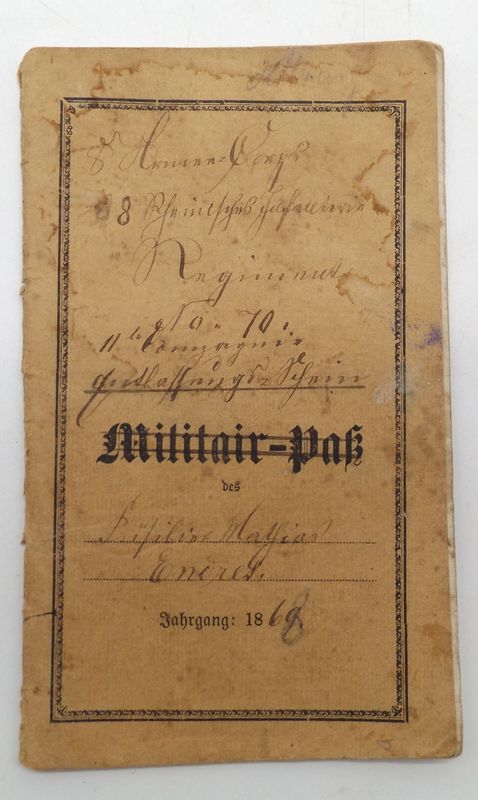 8 Armee=Corps
8 Rheinisches Infanterie
Regiment
No 70.
11te Compagnie
Entlassungs=Schein
Militair-Paß
des
Füsilier Mathias
Endres.
Jahrgang: 1868